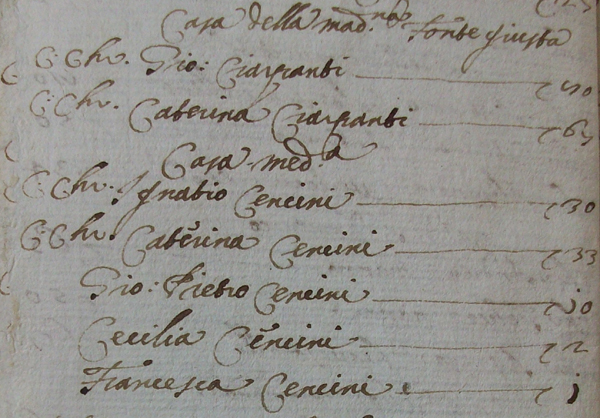 Casa della mad.na Fonte giusta
C: Chr. Gio: Ciarpanti 50
C: Chr. Caterina Ciarpanti 65
Casa med.a
C: Chr. Ignatio Cencini 30
C: Chr. Caterina Cencini 33
Gio: Pietro Cencini 10
Cecilia Cencini 2
Francesca Cencini j